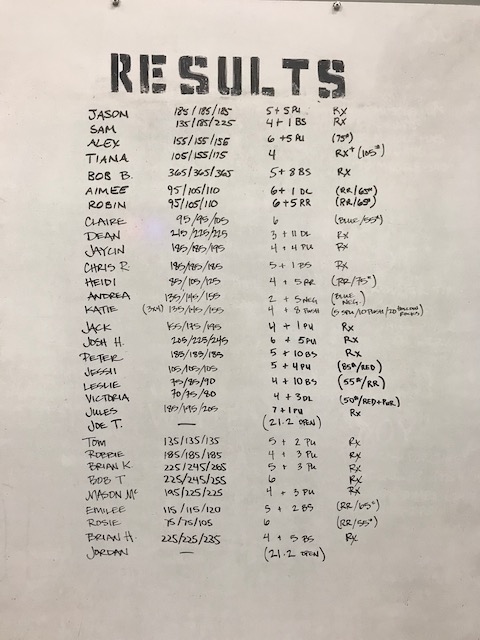 RESULTS
JASON 185/185/185 5+5PU RX
SAM 135/185/225 4+1BS RX
ALEX 155/155/155 6+5PU (75#)
TIANA 105/155/175 4 RX+ (105#)
BOB B. 365/365/365 5+8BS RX
AIMEE 95/105/110 6+1DL (RR/65#)
ROBIN 95/105/110 6+5RR (RR/65#)
CLAIRE 95/95/105 6 (BLUE/55#)
DEAN 215/225/225 3+11DL RX
JAYLIN 185/185/195 4+4PU RX
CHRIS R. 185/185/185 5+1BS RX
HEIDI 85/105/125 4+5RR
ANDREA 135/145/155 2+5NEG (BLUE NEG.)
KATIE (3x4) 135/145/155 4+8PUSH
JACK 155/175/195 4+1PU RX
JOSH H. 205/225/245 6+5PU RX
PETER 185/185/185 5+10BS RX
JESSII 105/105/105 5+4PU (85#/RED)
LESLIE 75/85/90 4+10BS (55#/RR)
VICTORIA 70/75/80 4+3DL
JULES 185/195/205 7+1PU RX
JOE T. — (21.2 OPEN)
TOM 135/135/135 5+2PU RX
ROBBIE 185/185/185 4+3PU RX
BRIAN K. 225/245/265 5+3PU RX
BOB T 225/245/255 6 RX
MASON MC 195/225/225 4+3PU RX
EMILEE 115/115/120 5+2BS (RR/65#)
ROSIE 75/75/105 6 (RR/55#)
BRIAN H. 225/225/235 4+5BS RX
JORDAN — (21.2 OPEN)